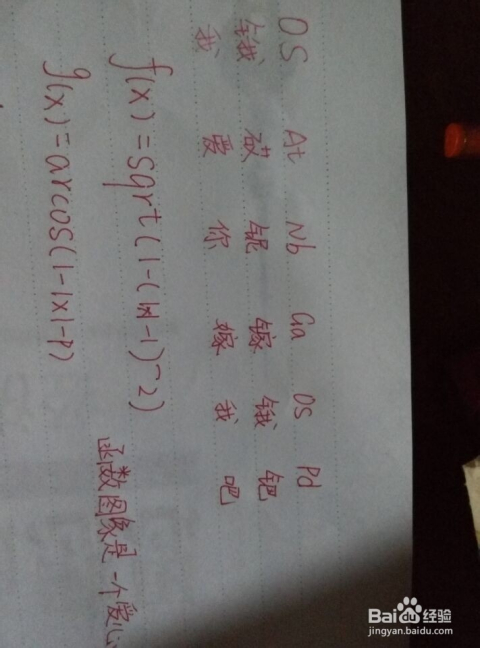 OS At Nb Ga OS Pd
锇 砹 铌 镓 锇 钯
我 爱 你 嫁 我 吧
f(x)=sqrt(1-(|x|-1)^2)
g(x)=arcos(1-|x|-P)
函数图象是一个爱心
Baidu经验
jingyan.baidu.com